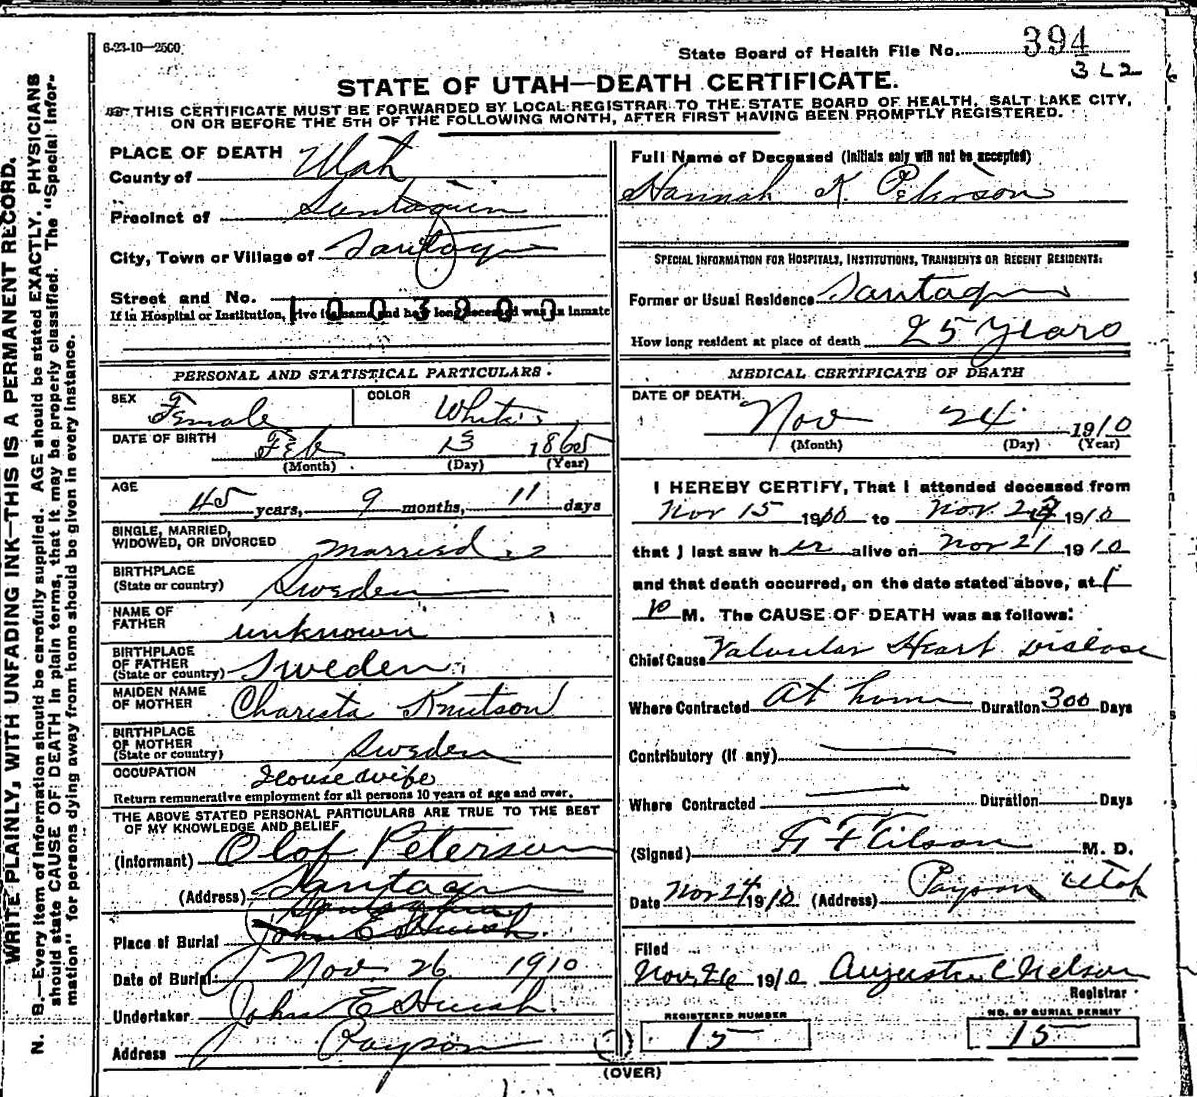 6-23-10—2500
State Board of Health File No. 394
3 L 2
STATE OF UTAH—DEATH CERTIFICATE.
THIS CERTIFICATE MUST BE FORWARDED BY LOCAL REGISTRAR TO THE STATE BOARD OF HEALTH, SALT LAKE CITY,
ON OR BEFORE THE 5TH OF THE FOLLOWING MONTH, AFTER FIRST HAVING BEEN PROMPTLY REGISTERED.
WRITE PLAINLY, WITH UNFADING INK—THIS IS A PERMANENT RECORD.
N. B.—Every item of information should be carefully supplied. AGE should be stated EXACTLY. PHYSICIANS
should state CAUSE OF DEATH in plain terms, that it may be properly classified. The "Special Infor-
mation" for persons dying away from home should be given in every instance.
PLACE OF DEATH
County of Utah
Precinct of Santaquin
City, Town or Village of Santaquin
Street and No.
If in Hospital or Institution, give its name and how long deceased was an inmate
1003203
PERSONAL AND STATISTICAL PARTICULARS.
SEX Female COLOR White
DATE OF BIRTH Feb 13 1865
(Month) (Day) (Year)
AGE 45 years, 9 months, 11 days
SINGLE, MARRIED,
WIDOWED, OR DIVORCED married
BIRTHPLACE
(State or country) Sweden
NAME OF
FATHER unknown
BIRTHPLACE
OF FATHER
(State or country) Sweden
MAIDEN NAME
OF MOTHER Charista Knutson
BIRTHPLACE
OF MOTHER
(State or country) Sweden
OCCUPATION Housewife
Return remunerative employment for all persons 10 years of age and over.
THE ABOVE STATED PERSONAL PARTICULARS ARE TRUE TO THE BEST
OF MY KNOWLEDGE AND BELIEF
(Informant) Olof Peterson
(Address) Santaquin
Place of Burial
Date of Burial Nov 26 1910
Undertaker John E Huish.
Address Payson
Full Name of Deceased (Initials only will not be accepted)
Hannah K. Peterson
SPECIAL INFORMATION FOR HOSPITALS, INSTITUTIONS, TRANSIENTS OR RECENT RESIDENTS:
Former or Usual Residence Santaquin
How long resident at place of death 25 years
MEDICAL CERTIFICATE OF DEATH
DATE OF DEATH Nov 24 1910
(Month) (Day) (Year)
I HEREBY CERTIFY, That I attended deceased from
Nov 15 1910 to Nov. 1910
that I last saw her alive on Nov 21 1910
and that death occurred, on the date stated above, at 1
P M. The CAUSE OF DEATH was as follows:
Chief Cause Valvular Heart disease
Where Contracted At home Duration 300 Days
Contributory (if any)
Where Contracted Duration Days
(Signed) M. D.
Date Nov 24 1910 (Address) Payson Utah
Filed
Nov. 26 1910 August C Nelson
Registrar
REGISTERED NUMBER 15
NO. OF BURIAL PERMIT 15
(OVER)